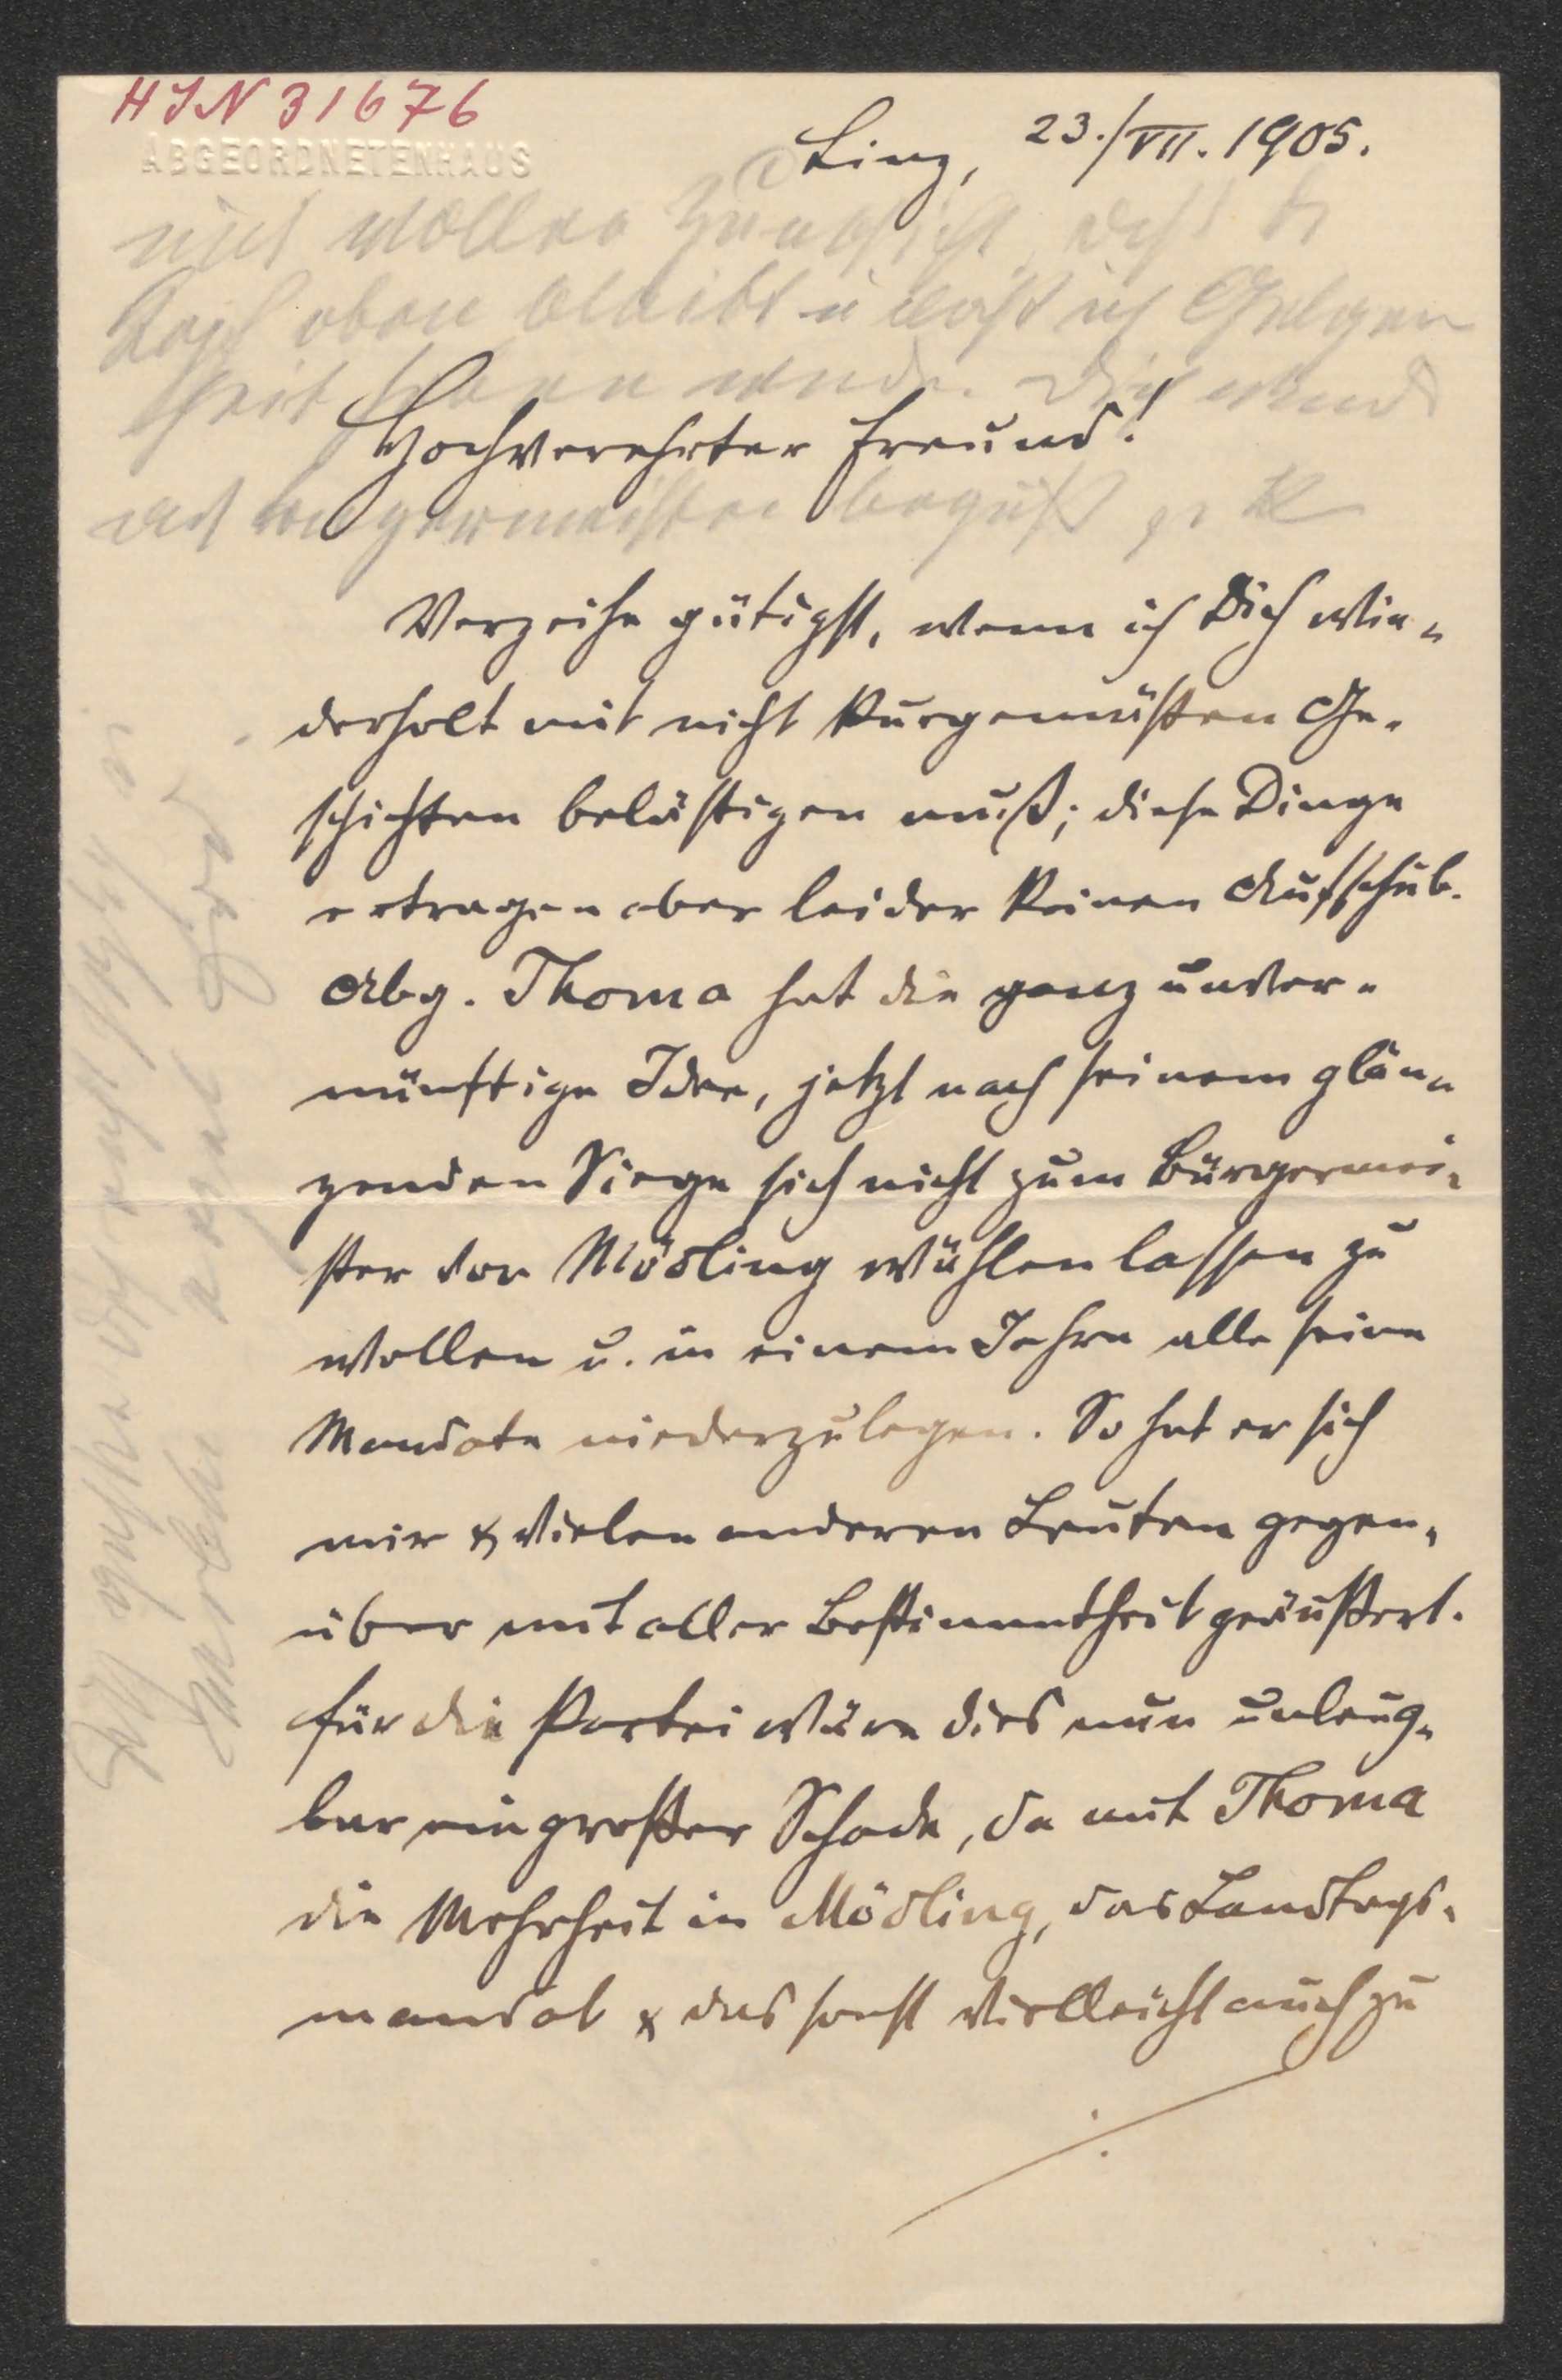 HIN 31676
ABGEORDNETENHAUS
Linz, 23./VII. 1905.
mit voller
Kopf oben bleibt u
Hochverehrter Freund!
Verzeihe gütigst, wenn ich Dich wie-
derholt mit nicht kurgemäßen Ge-
schichten belästigen muß; diese Dinge
ertragen aber leider keinen Aufschub.
Abg. Thoma hat die ganz unver-
nünftige Idee, jetzt nach seinem glän-
zenden Siege sich nicht zum Bürgermei-
ster von Mödling wählen lassen zu
wollen u. in einem Jahre alle seine
Mandate niederzulegen. So hat er sich
mir & vielen anderen Leuten gegen-
über mit aller Bestimmtheit geäußert.
Für die Partei wäre dies nun unleug-
bar ein großer Schade, da mit Thoma
die Mehrheit in Mödling, das Landtags-
mandat & das sonst vielleicht auch zu